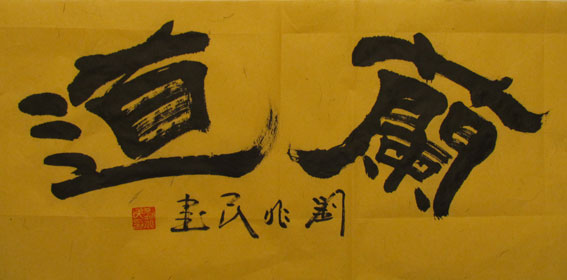 蘭道
劉民書